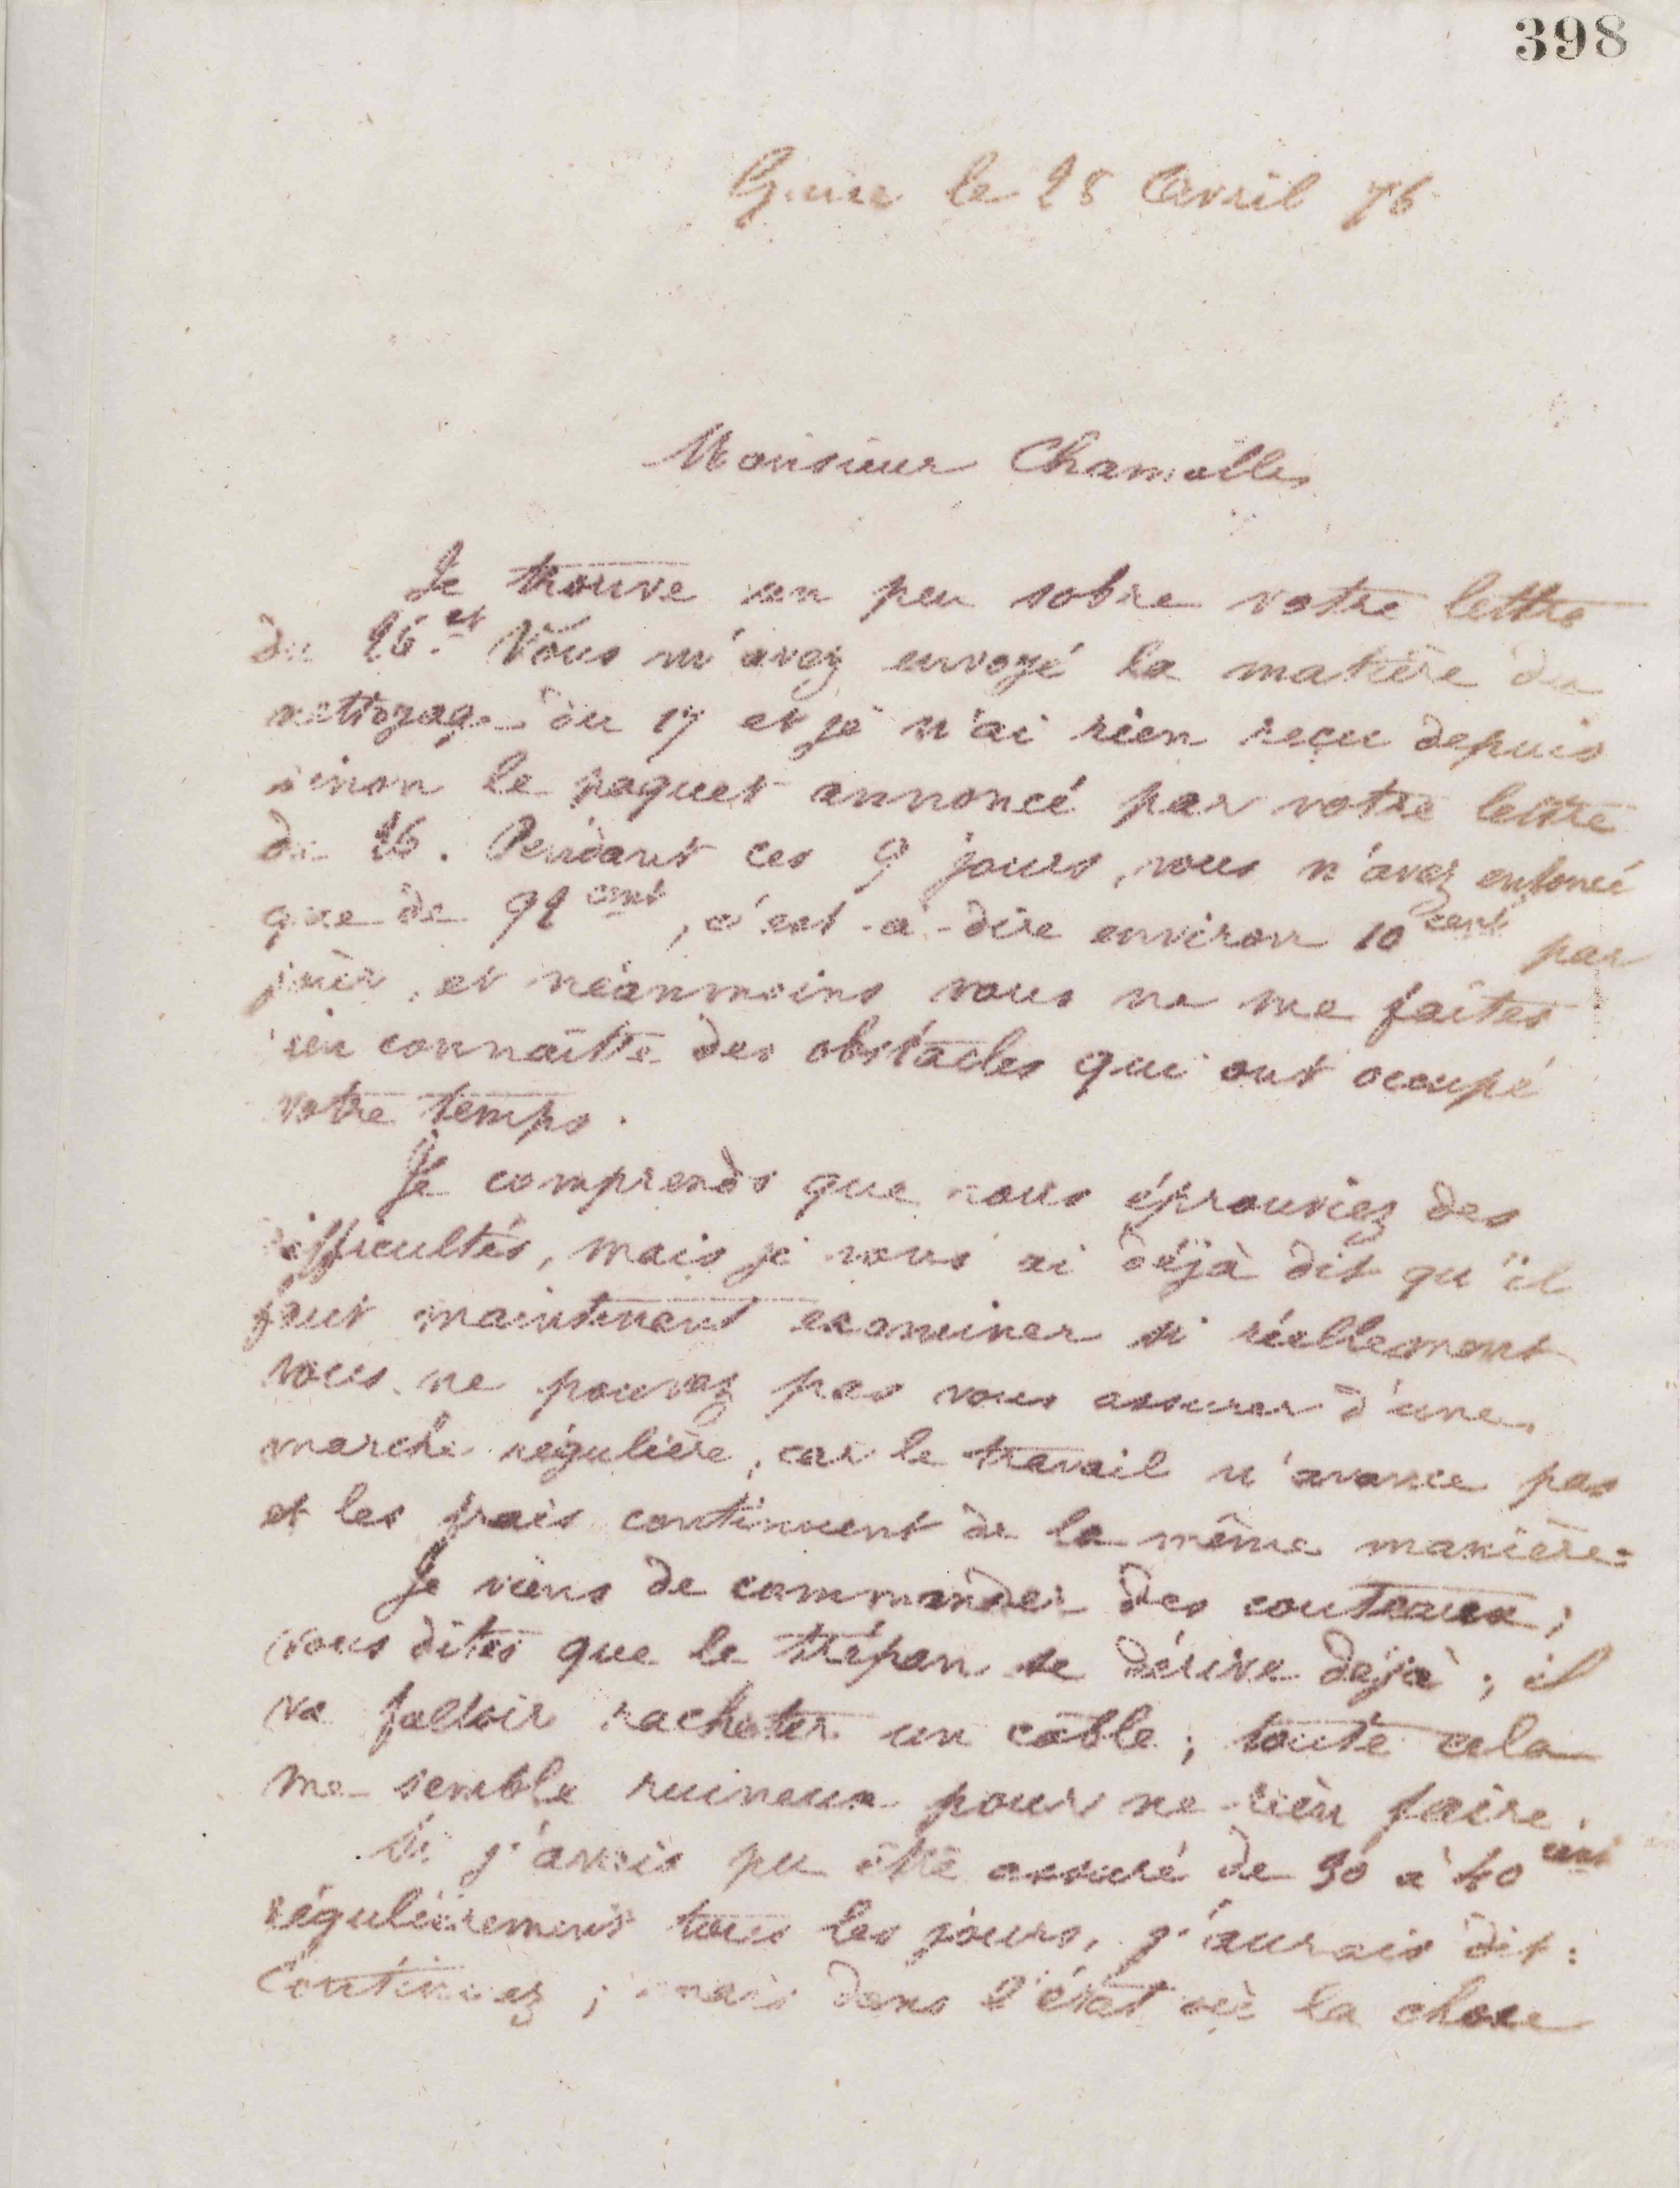 398
Guise le 28 Avril 76
Monsieur Chamolle
Je trouve un peu sobre votre lettre
du 26 ct Vous m'avez envoyé la matière du
nettoyage du 17 et je n'ai rien reçu depuis
sinon le paquet annoncé par votre lettre
du 26. Pendant ces 9 jours, vous n'avez enfoncé
que de 92 cent, c'est-à-dire environ 10 cent par
jour, et néanmoins vous ne me faites
rien connaître des obstacles qui ont occupé
votre temps.
Je comprends que vous éprouviez des
difficultés, mais je vous ai déjà dit qu'il
faut maintenant examiner si réellement
vous ne pouvez pas vous assurer d'une
marche régulière, car le travail n'avance pas
et les frais continuent de la même manière.
Je viens de commander des couteaux;
vous dites que le trépan se dérive déjà; il
va falloir racheter un câble; toute cela
me semble ruineux pour ne rien faire.
Si j'avais pu être assuré de 30 à 40 cent
régulièrement tous les jours, j'aurais dit:
Continuez; mais dans l'état où la chose